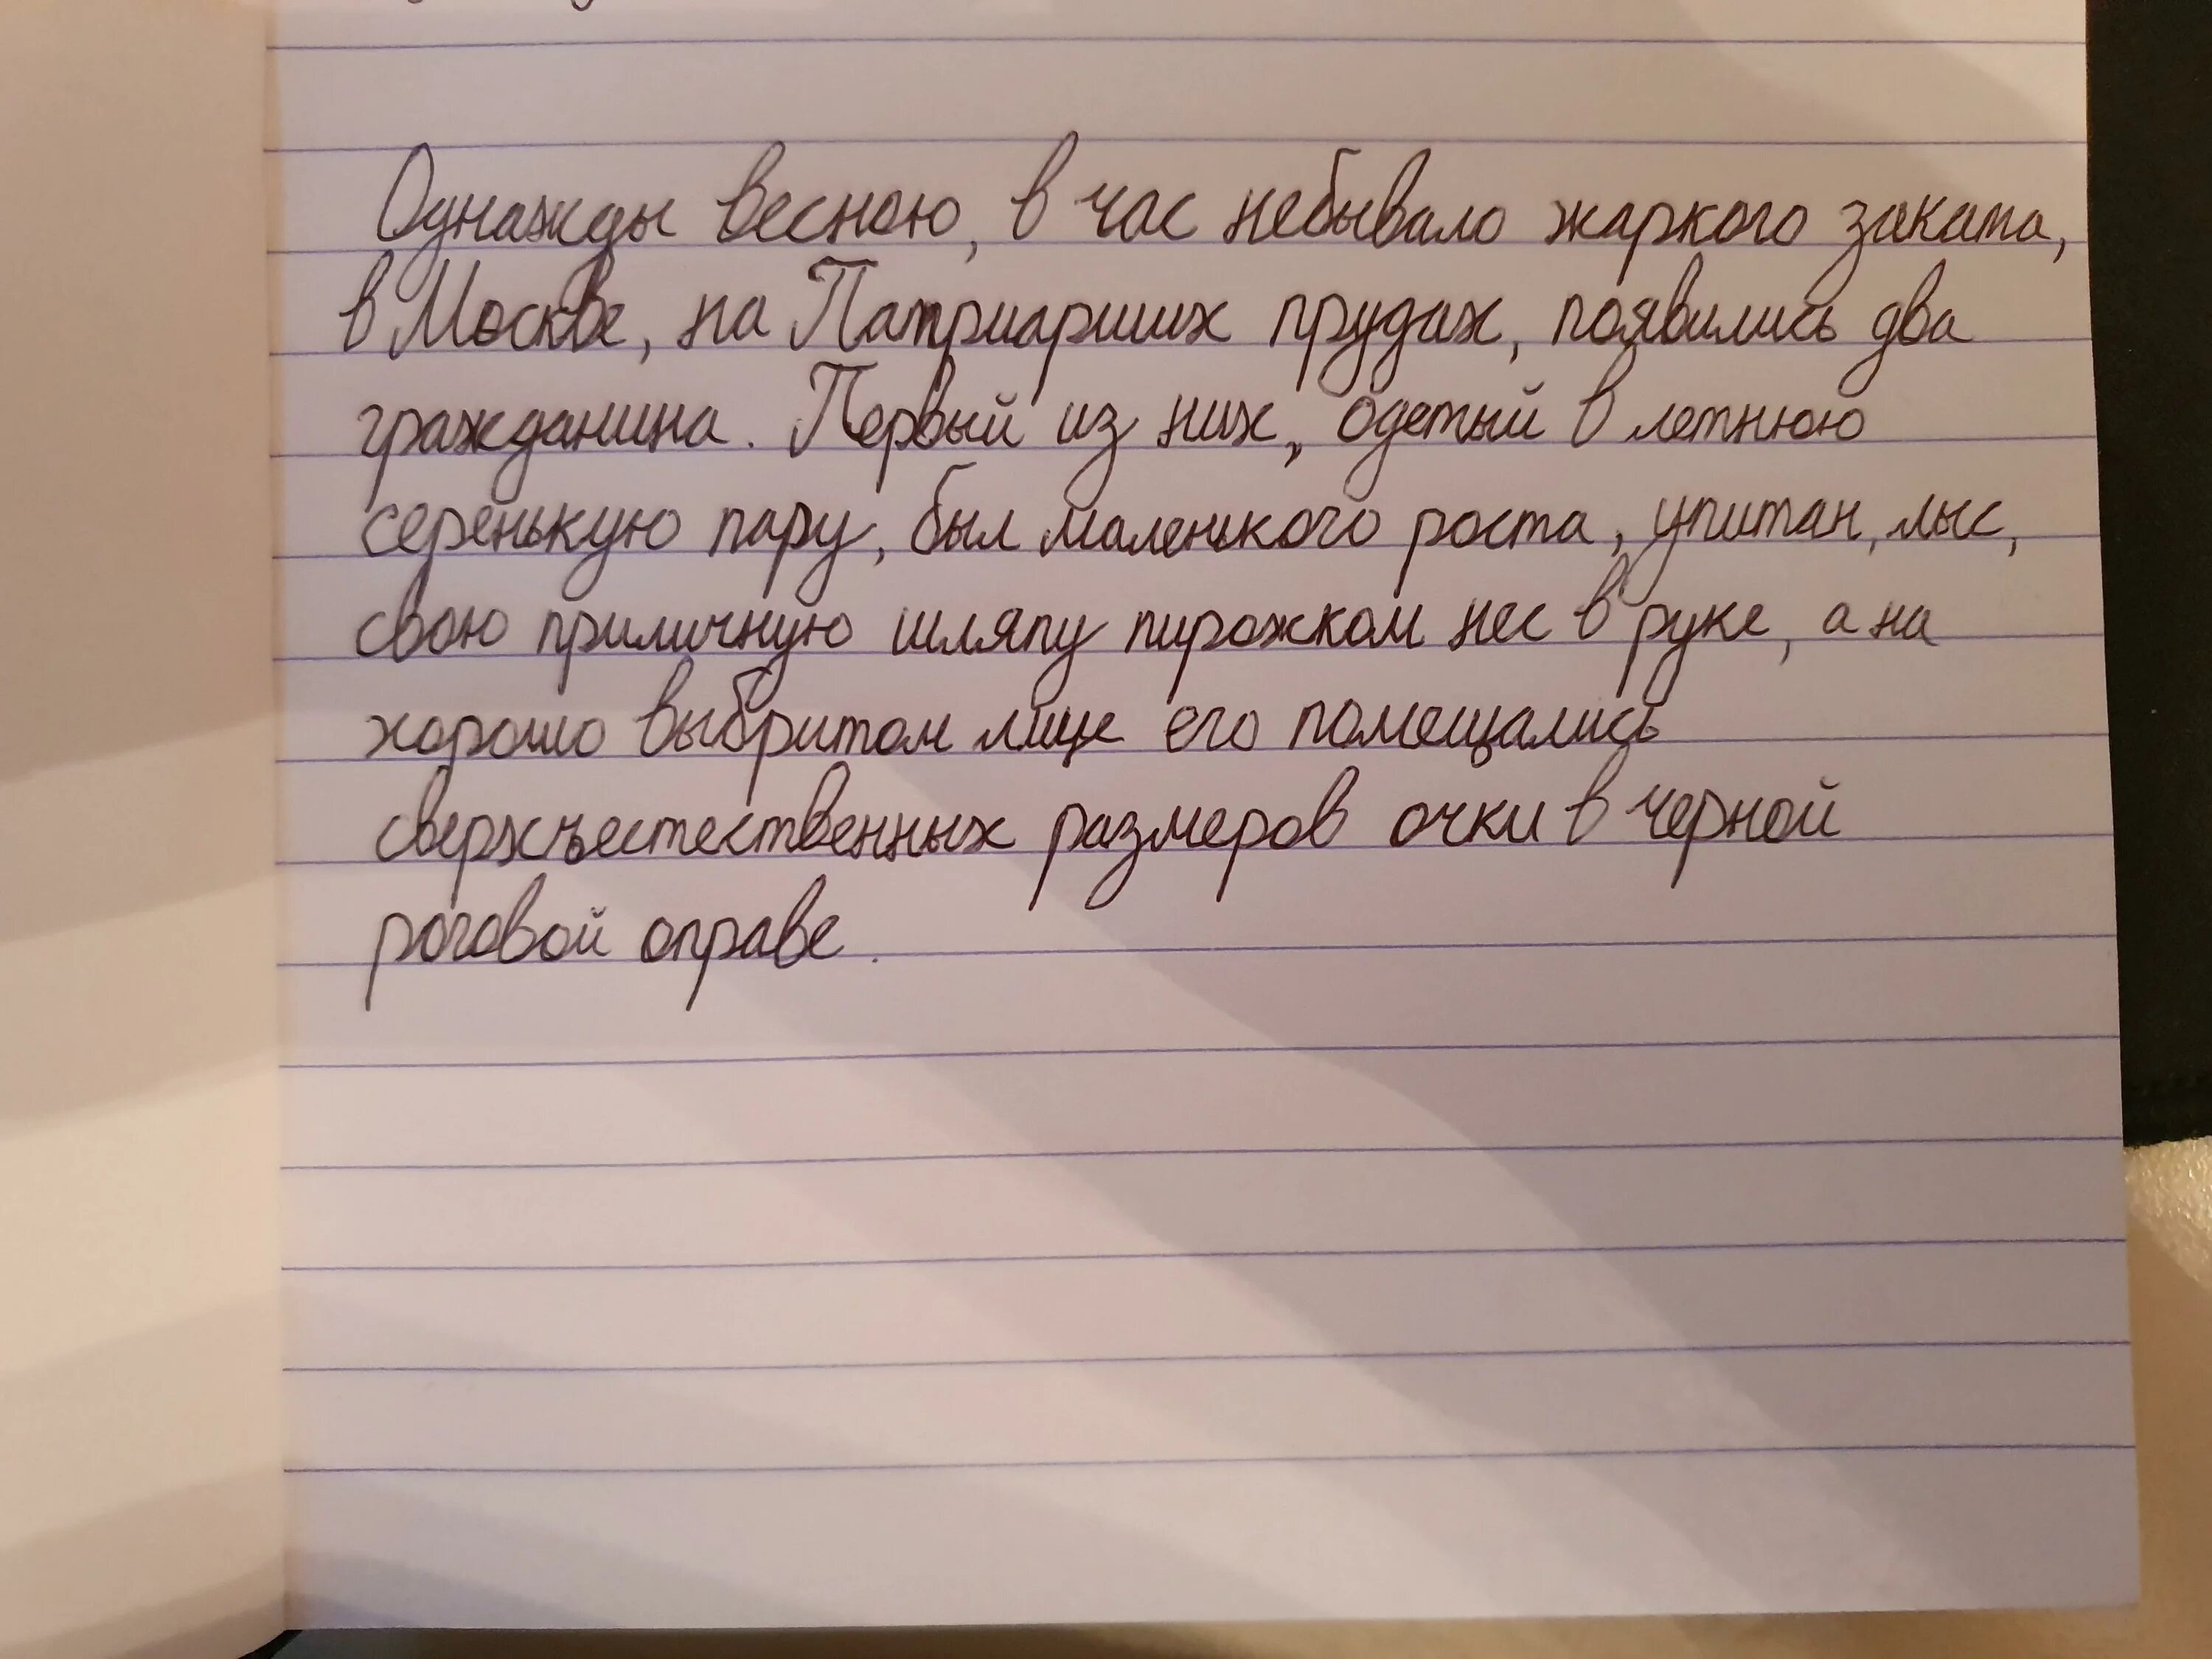 Однажды весною, в час небывало жаркого заката,
в Москве, на Патриарших прудах, появились два
гражданина. Первый из них, одетый в летнюю
серенькую пару, был маленького роста, упитан, лыс,
свою приличную шляпу пирожком нес в руке, а на
хорошо выбритом лице его помещались
сверхъестественных размеров очки в черной
роговой оправе.